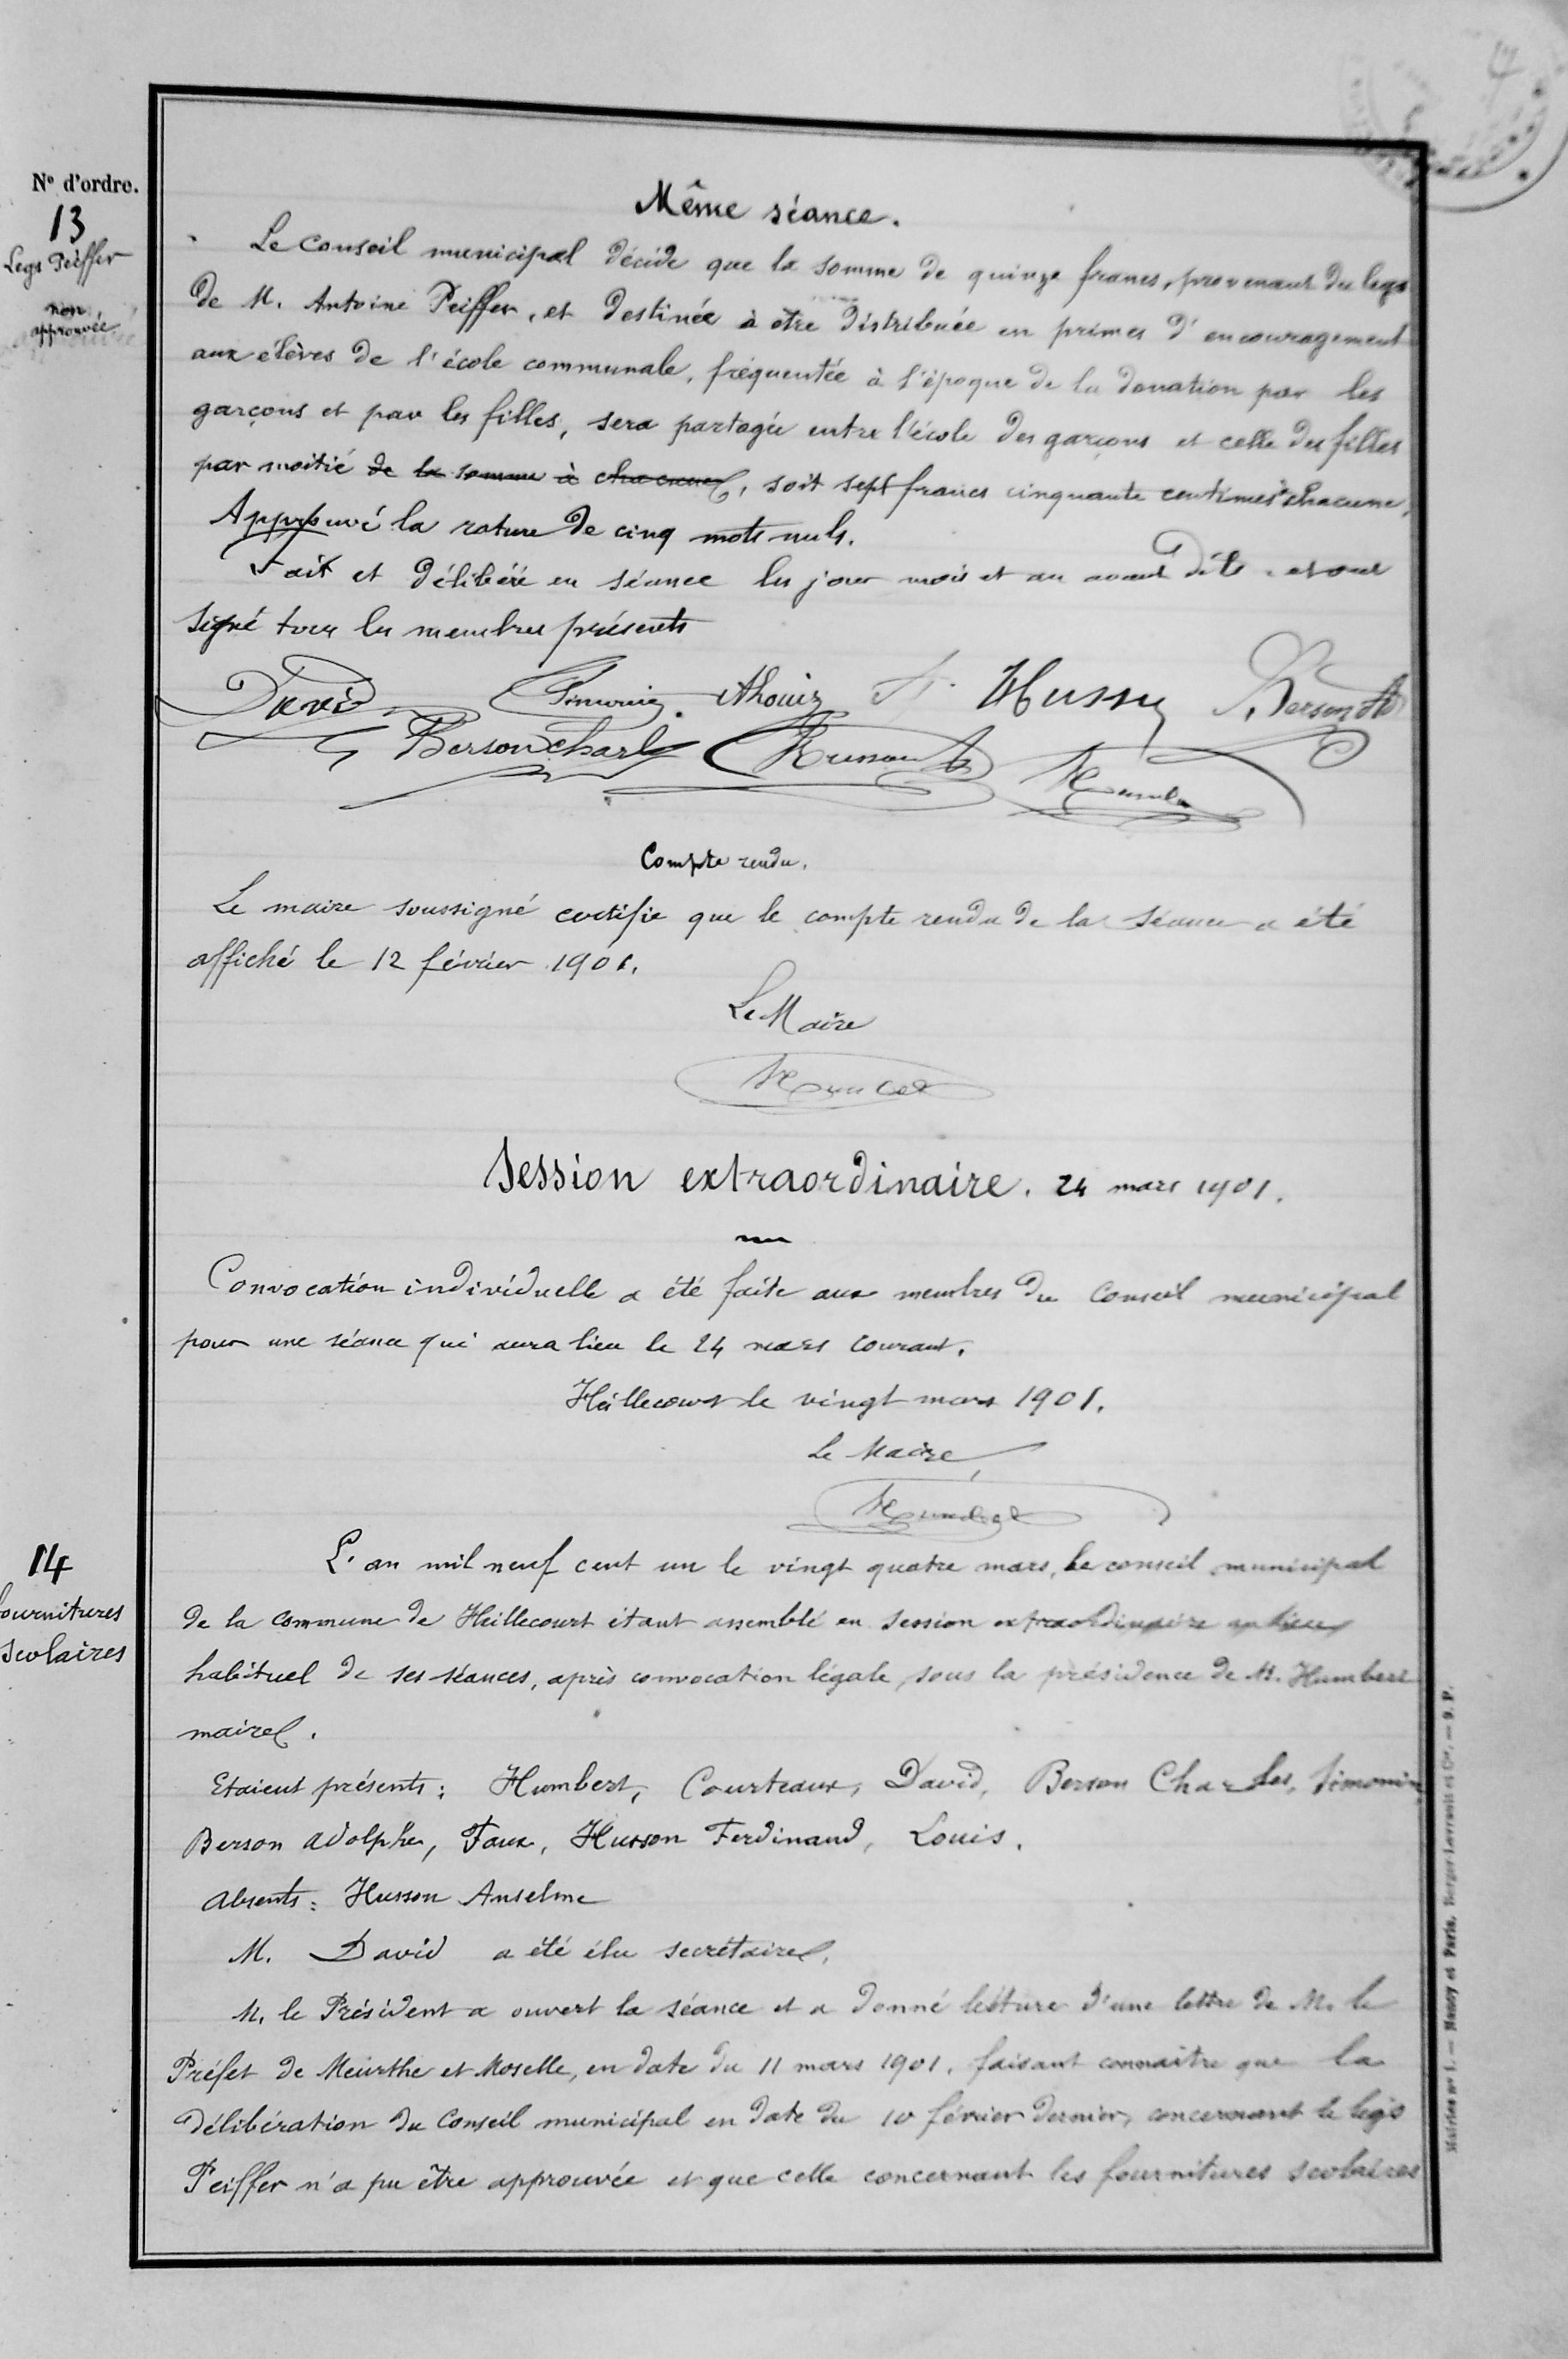 4
N° d'ordre.
13
Legs Peiffer
non
approuvée
Même séance.
Le Conseil municipal décide que la somme de quinze francs, provenant du legs
de M. Antoine Peiffer, et destinée à être distribuée en primes d'encouragement
aux élèves de l'école communale, fréquentée à l'époque de la donation par les
garçons et par les filles, sera partagée entre l'école des garçons et celle des filles
par moitié de la somme à chacune, soit sept francs cinquante centimes à chacune.
Approuvé la rature de cinq mots nuls.
Fait et délibéré en séance les jour mois et an avant dits et ont
signé tous les membres présents
David Simonin Husson
Berson Charles
Compte rendu.
Le maire soussigné certifie que le compte rendu de la séance a été
affiché le 12 février 1901.
Le Maire
Humbert
Session extraordinaire. 24 mars 1901.
Convocation individuelle a été faite aux membres du Conseil municipal
pour une séance qui aura lieu le 24 mars courant.
Heillecourt le vingt mars 1901.
Le Maire,
Humbert
14
Fournitures
scolaires
L'an mil neuf cent un le vingt quatre mars, le conseil municipal
de la commune de Heillecourt étant assemblé en session extraordinaire au lieu
habituel de ses séances, après convocation légale, sous la présidence de M. Humbert
maire.
Etaient présents : Humbert, Courteaux, David, Berson Charles, Simonin
Berson Adolphe, Faux, Husson Ferdinand, Louis.
Absents : Husson Anselme
M. David a été élu secrétaire.
M. le Président a ouvert la séance et a donné lecture d'une lettre de M. le
Préfet de Meurthe et Moselle, en date du 11 mars 1901, faisant connaître que la
délibération du Conseil municipal en date du 10 février dernier, concernant le legs
Peiffer n'a pu être approuvée et que celle concernant les fournitures scolaires
Mairies n° 1. — Nancy et Paris. Berger-Levrault et Cie. — 9. P.